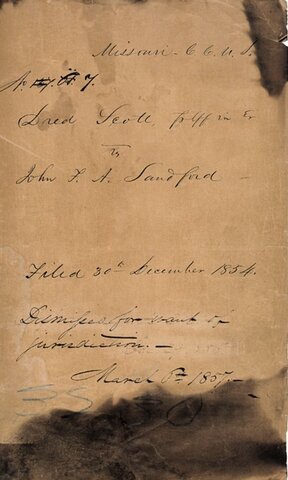 Missouri C. C. U. S.
No 7.
Dred Scott, Plff in Er
vs
John F. A. Sandford
Filed 30th December 1854.
Dismissed for want of
jurisdiction.
March 6th 1857.